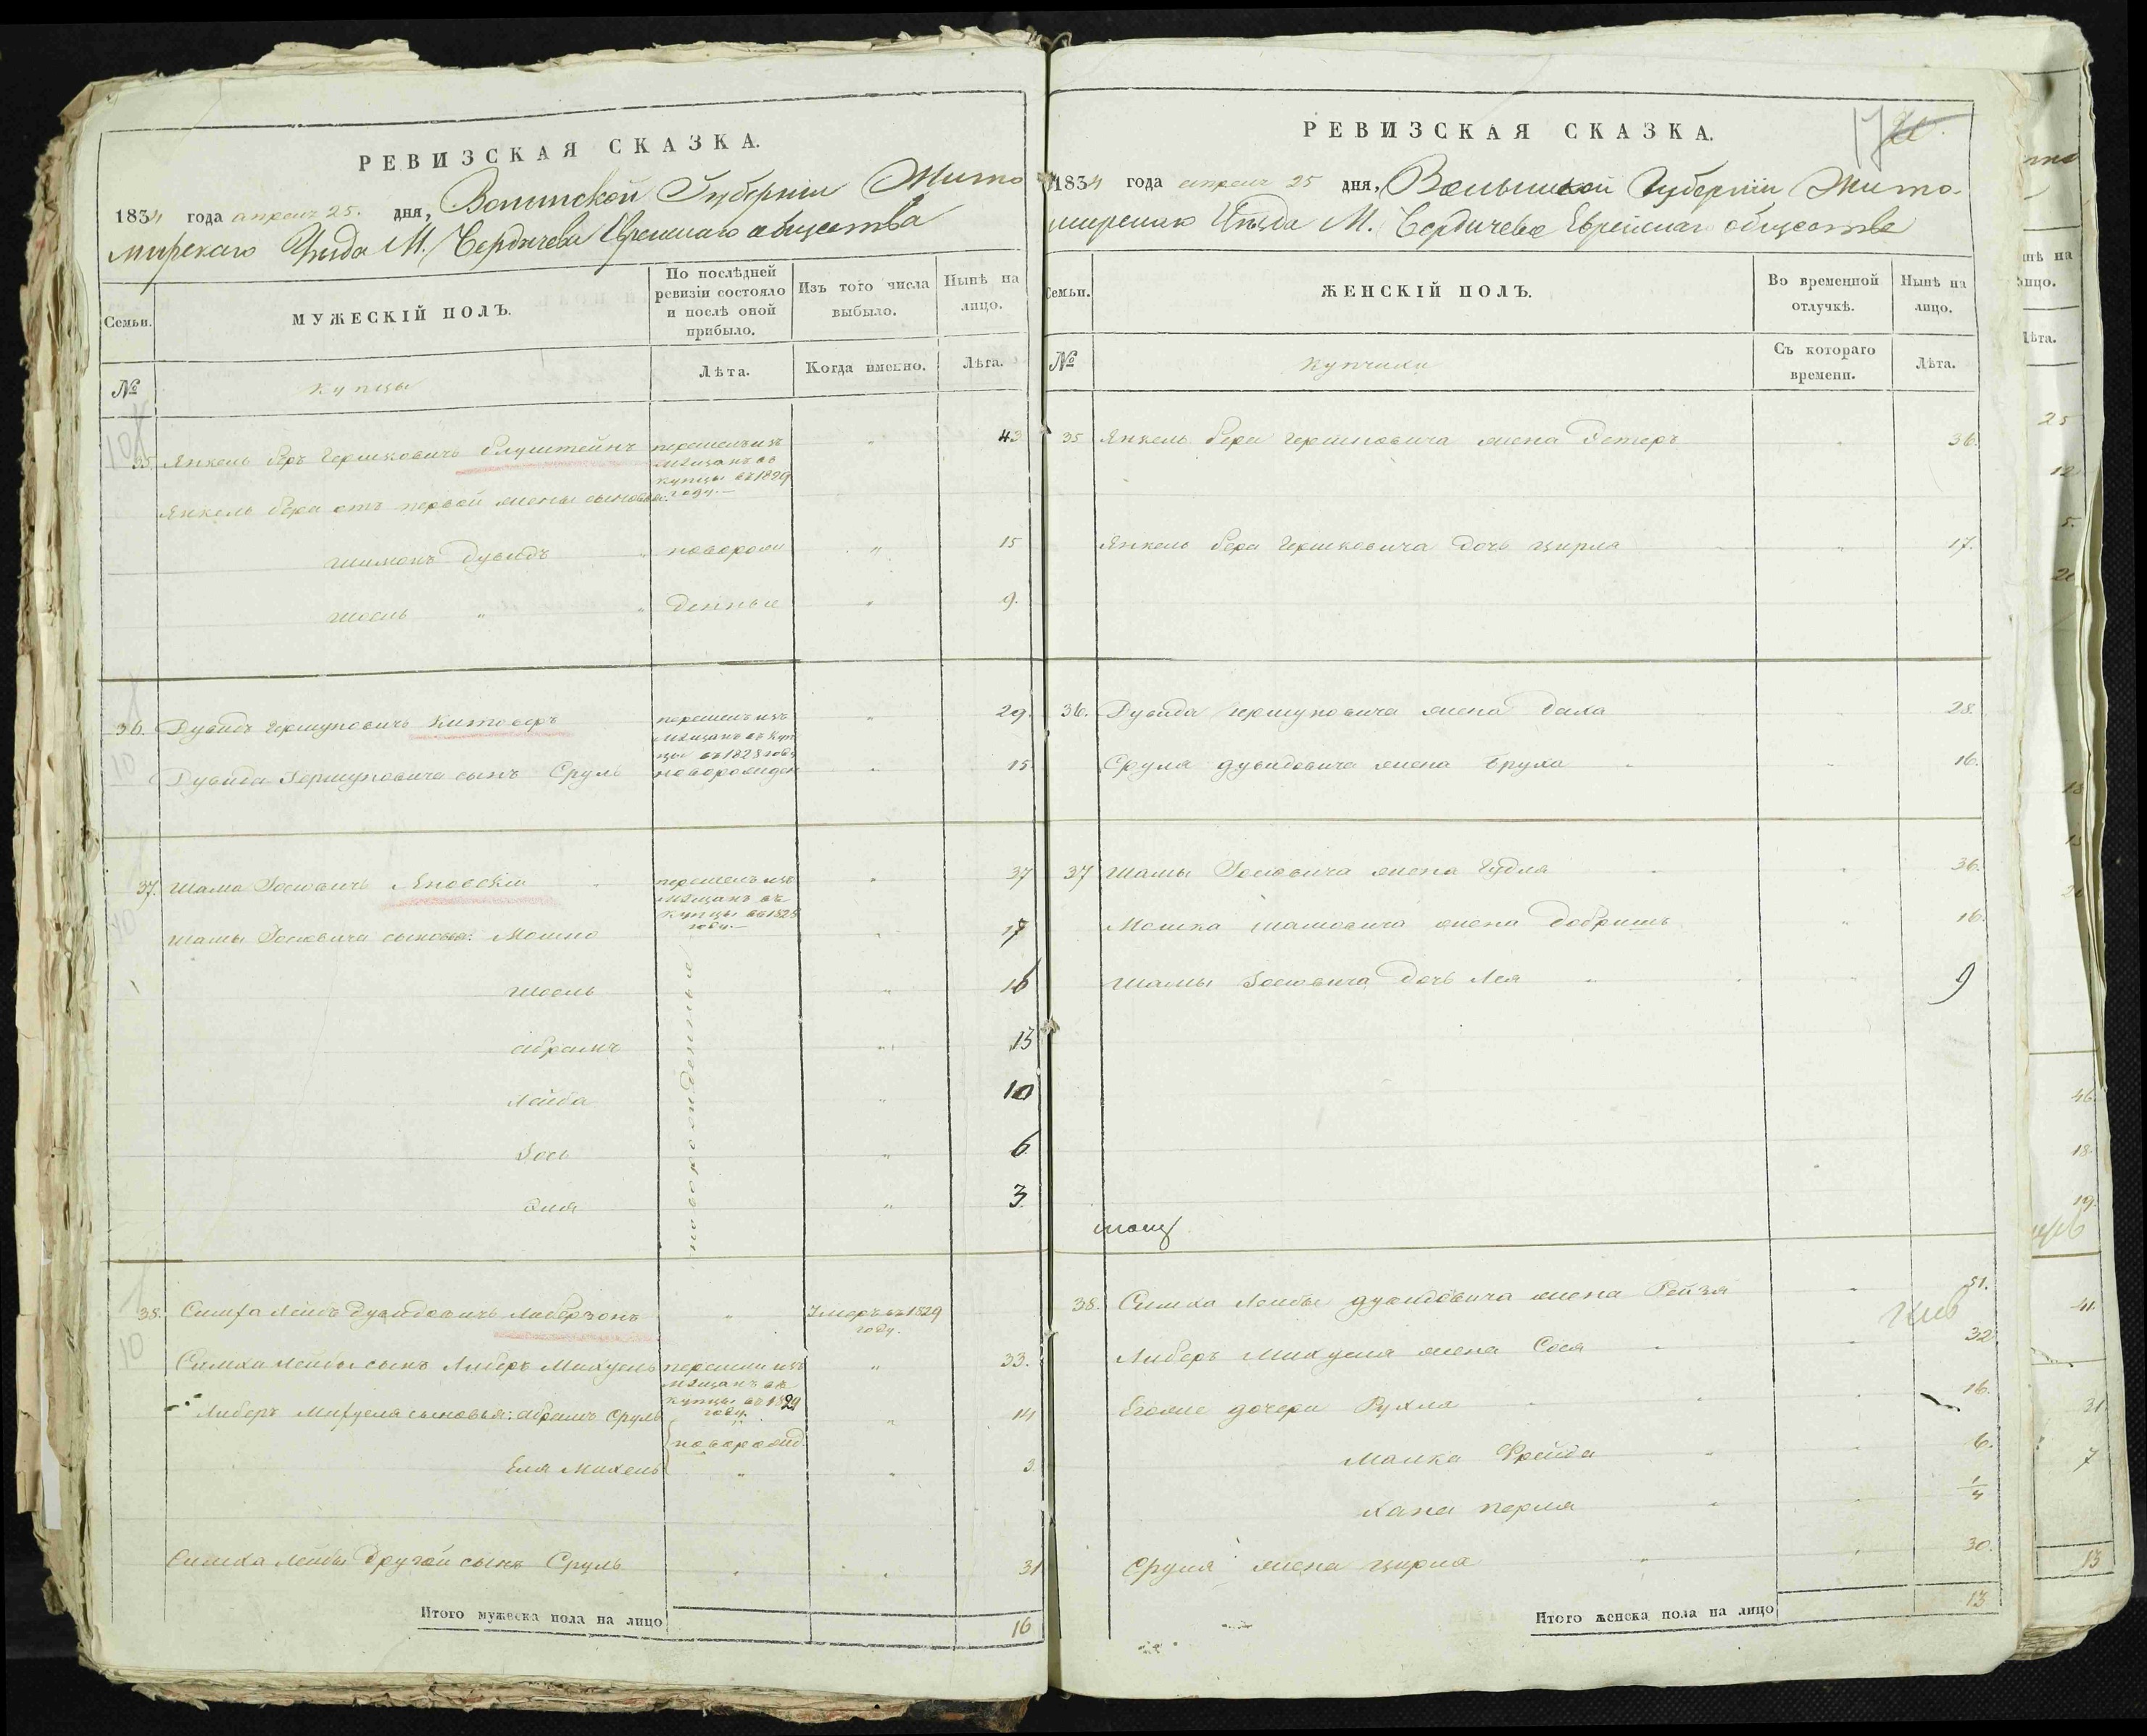 РЕВИЗСКАЯ СКАЗКА.
1834 года апреля 25. дня, Волынской Губерніи Жито
мирскаго Уѣзда М. Бердичева Еврейскаго общества
Семьи.
МУЖЕСКІЙ ПОЛЪ.
По послѣдней ревизіи состояло и послѣ оной прибыло.
Изъ того числа выбыло.
Нынѣ на лицо.
№
Купцы
Лѣта.
Когда именно.
Лѣта.
35. Янкель Беръ Гершковичъ перешелъ изъ мѣщанъ въ купцы въ 1829 году. " 43
Янкель Бера отъ первой жены сыновья:
Шимонъ Дувидъ " новорож " 15
Шоель " " денные " 9.
36. Дувидъ Гершуновичъ Китоверъ перешелъ изъ мѣщанъ въ куп цы въ 1828 году " 29.
Дувида Гершуновича сынъ Сруль новорожден " 15
37. Шама Іосіовичъ Яновскій " перешелъ изъ мѣщанъ въ купцы въ 1828 году. " 37
Шамы Іосіовича сыновья: Мошко " 17
Шоель " 16
Абрамъ " 13
Лейба " 10
Іось " 6
Эля " 3
новорожденные
38. Симха Лейбъ Дувидовичъ Либерзонъ " Умеръ въ 1829 году.
Симха Лейбы сынъ Либеръ Михуель перешли изъ мѣщанъ въ купцы въ 1829 году. " 33.
Либеръ Михуеля сыновья: Абрамъ Сруль новорожд. " 14
Еля Михель " " 3
Симха Лейбы другой сынъ Сруль " " 31
Итого мужеска пола на лицо 16
РЕВИЗСКАЯ СКАЗКА.
17
1834 года апреля 25 дня, Волынской Губерніи Жито-
мирскаго Уѣзда М. Бердичева Еврейскаго общества
Семьи.
ЖЕНСКІЙ ПОЛЪ.
Во временной отлучкѣ.
Нынѣ на лицо.
№
Купчихи
Съ котораго времени.
Лѣта.
35 Янкель Бера Гершковича жена Эстеръ " 36.
Янкель Бера Гершковича дочь Цирля " 17.
36. Дувида Гершуновича жена 28.
Сруля Дувидовича жена Бруха " " 16.
37 Шамы Іосіовича жена Гудля " " 36.
Мошка Шамовича жена Добришъ " 16.
Шамы Іосіовича дочь Лея " " 9
38. Симха Лейбы Дувидовича жена Рейзя " 51.
Либеръ Михуеля жена Сося " " 32
Егожъ дочери Рухля " " 16.
Малка Фрейда " " 6.
Хана Перля " " 1/4
Сруля жена Цирля " " 30.
Итого женска пола на лицо 13